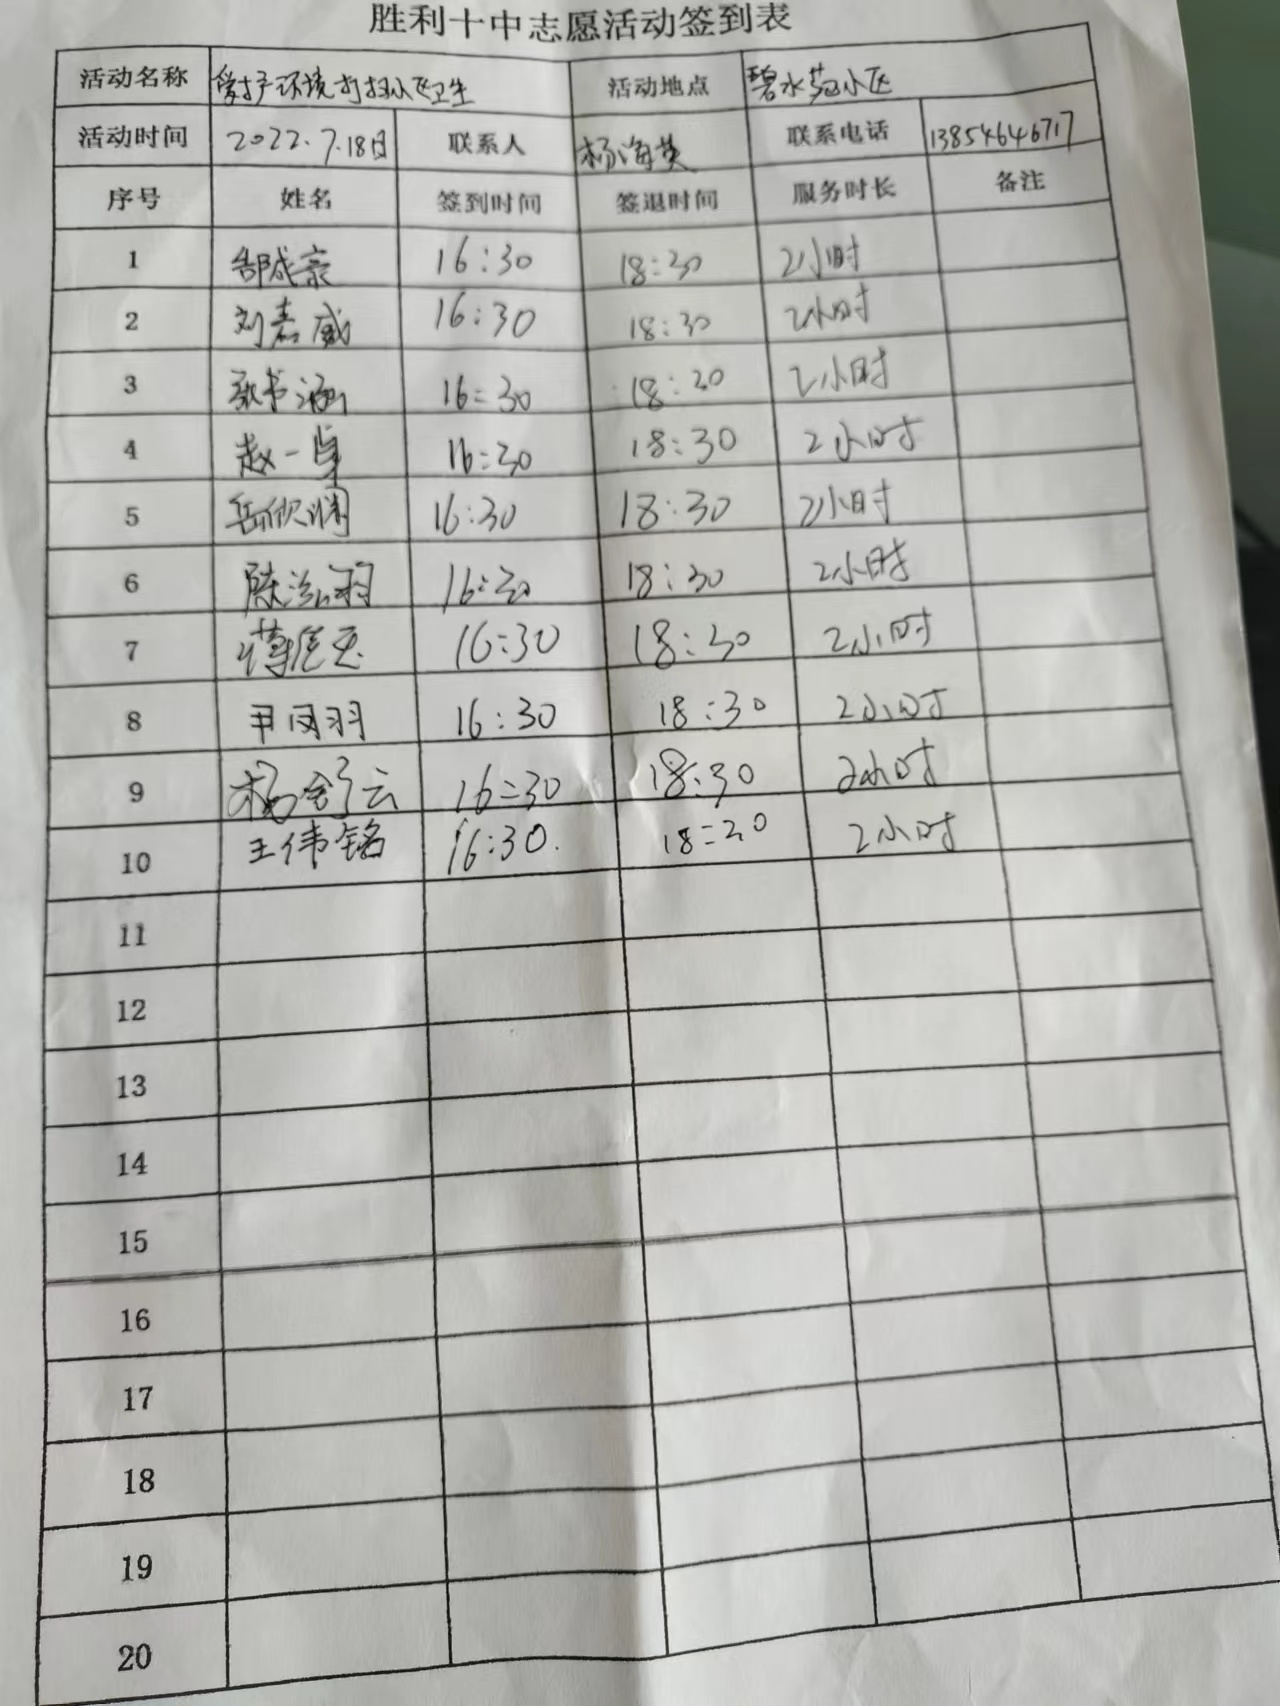 胜利十中志愿活动签到表
活动名称 爱护环境打扫小区卫生 活动地点 碧水苑小区
活动时间 2022.7.18日 联系人 杨海英 联系电话 13854646717
序号 姓名 签到时间 签退时间 服务时长 备注
1 郜成豪 16:30 18:30 2小时
2 刘嘉威 16:30 18:30 2小时
3 张书涵 16:30 18:30 2小时
4 赵一卓 16:30 18:30 2小时
5 岳欣澜 16:30 18:30 2小时
6 陈泓羽 16:30 18:30 2小时
7 16:30 18:30 2小时
8 羽 16:30 18:30 2小时
9 杨舒云 16:30 18:30 2小时
10 王伟铭 16:30. 18:30 2小时
11
12
13
14
15
16
17
18
19
20